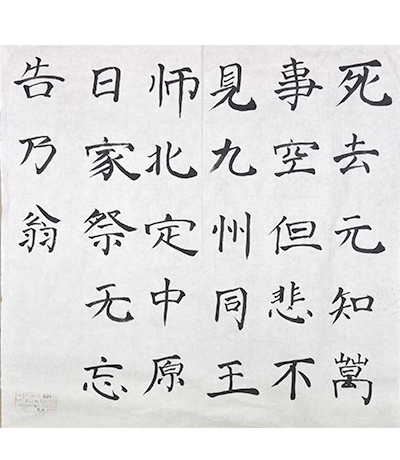 死去元知萬
事空但悲不
見九州同王
师北定中原
日家祭无忘
告乃翁